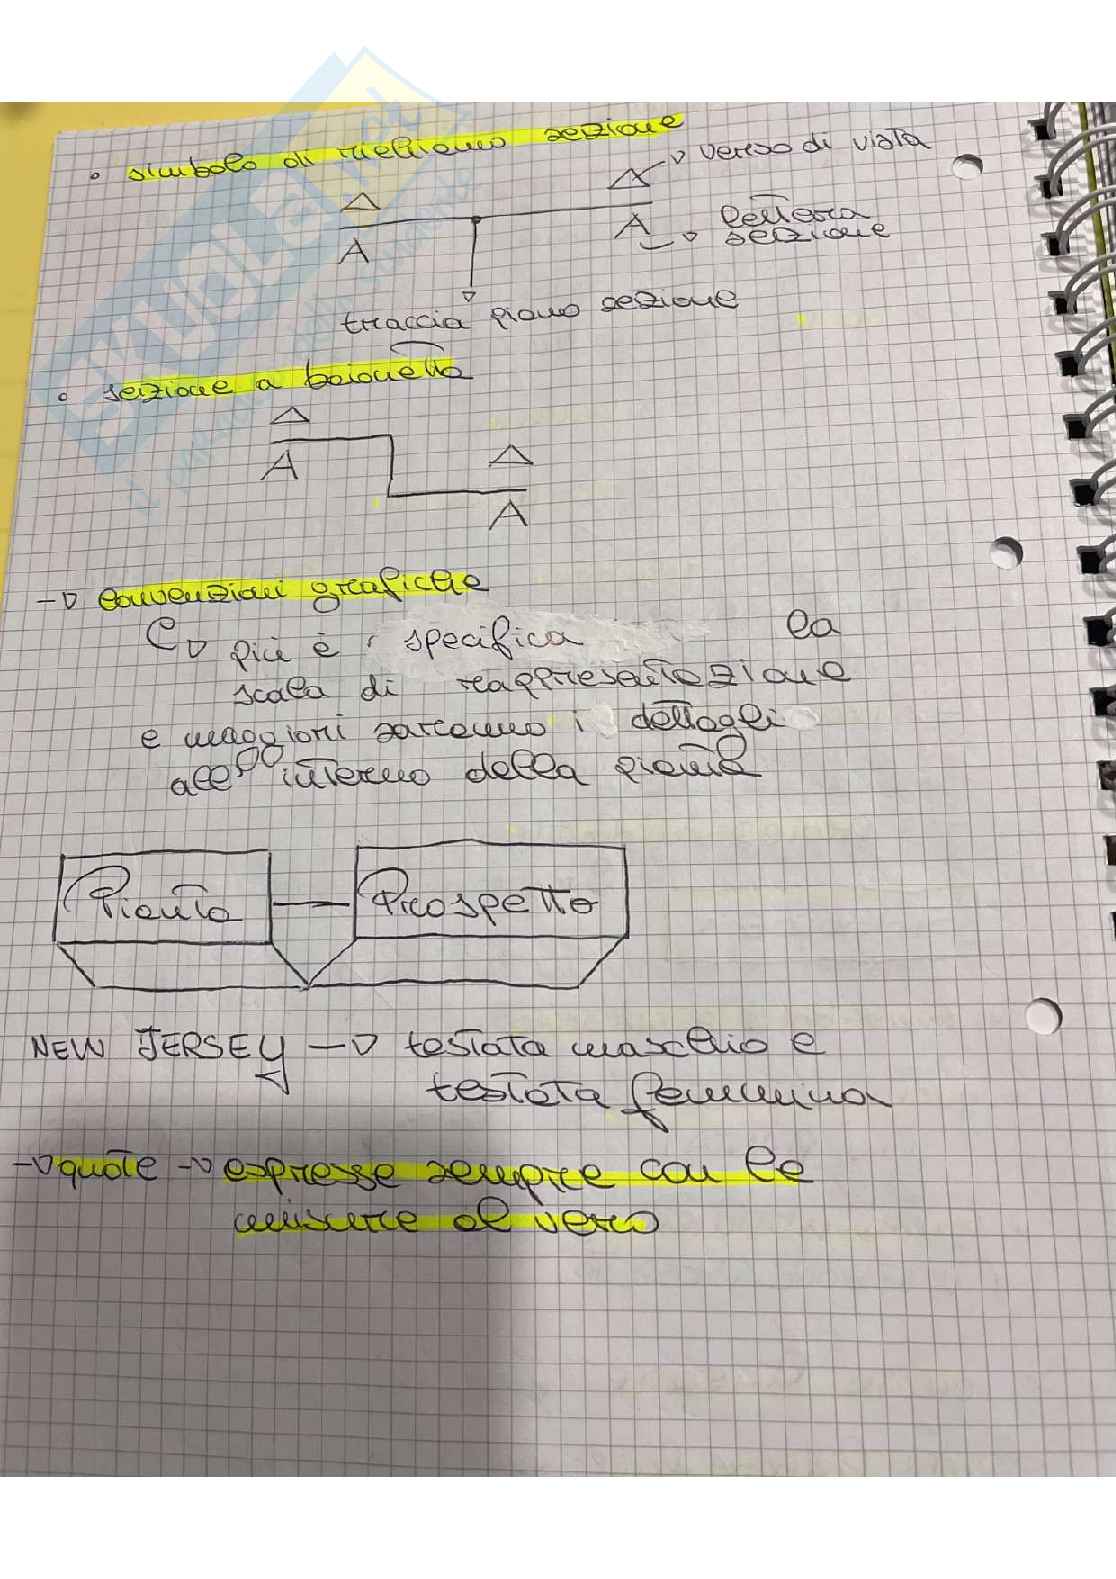 • simbolo di richiamo sezione
verso di vista
A A lettera
sezione
traccia piano sezione
• sezione a baionetta
A
A
→ convenzioni grafiche
più è specifica la
scala di rappresentazione
e maggiori saranno i dettagli
all'interno della pianta
Pianta Prospetto
NEW JERSEY → testata maschio e
testata femmina
→ quote → espresse sempre con le
misure al vero